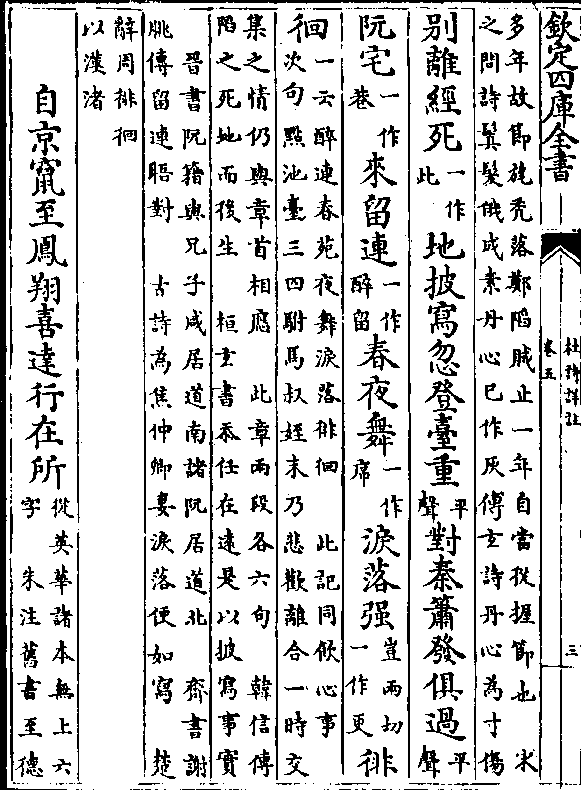 欽定四庫全書
杜詩詳註
卷五
三
多年故節旄禿落鄭陷賊止一年自當從握節也 宋
之問詩鬂髮俄成素丹心已作灰傅玄詩丹心為寸傷
别離經死一作此地披寫忽登臺重平聲對秦簫發俱過平聲
阮宅一作巷來留連一作醉留春夜舞一作席淚落强豈兩切一作更徘
徊一云醉連春苑夜舞淚落徘徊 此記同飲心事
次句點池臺三四駙馬叔姪末乃悲歡離合一時交
集之情仍與章首相應 此章兩段各六句 韓信傳
陷之死地而後生 桓玄書忝任在遠是以披寫事實
晉書阮籍與兄子咸居道南諸阮居道北 齊書謝
朓傳留連晤對 古詩為焦仲卿妻淚落便如寫 楚
辭周徘徊
以漢渚
自京竄至鳳翔喜達行在所從英華諸本無上六
字 朱注舊書至德